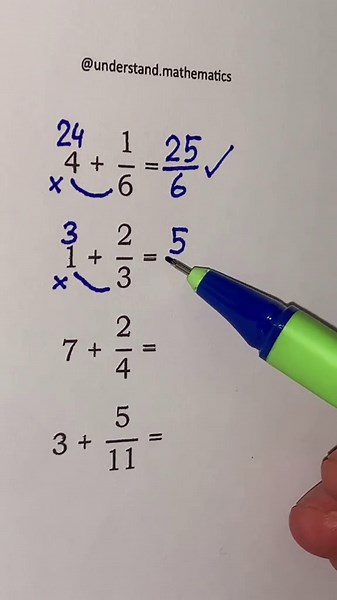 @understand.mathematics
24
4 + 1/6 = 25/6 ✓
x
3
1 + 2/3 = 5
x
7 + 2/4 =
3 + 5/11 =